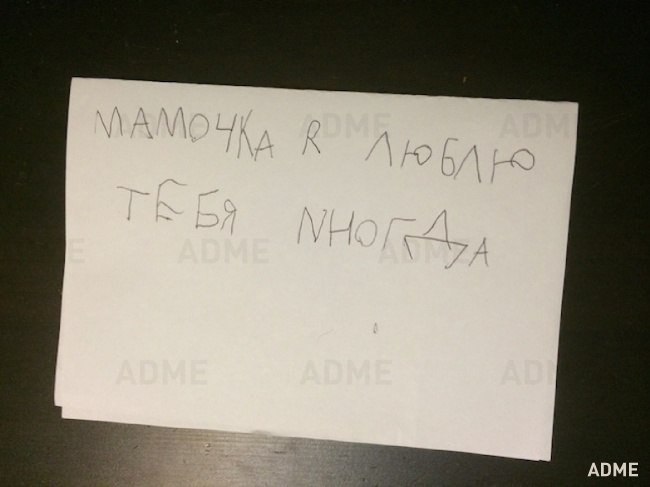 МАМОЧКА R ЛЮБЛЮ
ТЕБЯ NНОГДА
ADME
ADME
ADME
ADME
ADME
ADME
ADME
ADME
ADME